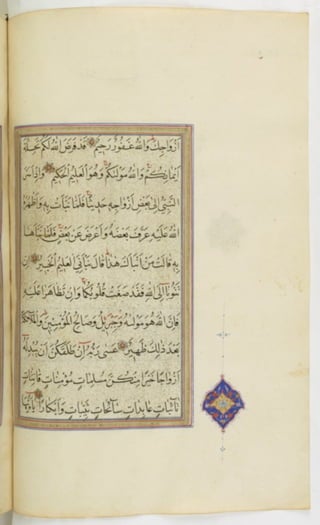 أَزْوَاجِكَ وَاللَّهُ غَفُورٌ رَحِيمٌ قَدْ فَرَضَ اللَّهُ لَكُمْ تَحِلَّةَ
أَيْمَانِكُمْ وَاللَّهُ مَوْلَيكُمْ وَهُوَ الْعَلِيمُ الْحَكِيمُ وَإِذْ أَسَرَّ
النَّبِيُّ إِلَى بَعْضِ أَزْوَاجِهِ حَدِيثًا فَلَمَّا نَبَّأَتْ بِهِ وَأَظْهَرَهُ
اللَّهُ عَلَيْهِ عَرَّفَ بَعْضَهُ وَأَعْرَضَ عَنْ بَعْضٍ فَلَمَّا نَبَّأَهَا
بِهِ قَالَتْ مَنْ أَنْبَأَكَ هَذَا قَالَ نَبَّأَنِيَ الْعَلِيمُ الْخَبِيرُ إِنْ
تَتُوبَا إِلَى اللَّهِ فَقَدْ صَغَتْ قُلُوبُكُمَا وَإِنْ تَظَاهَرَا عَلَيْهِ
فَإِنَّ اللَّهَ هُوَ مَوْلَيهُ وَجِبْرِيلُ وَصَالِحُ الْمُؤْمِنِينَ وَالْمَلَائِكَةُ
بَعْدَ ذَلِكَ ظَهِيرٌ عَسَى رَبُّهُ إِنْ طَلَّقَكُنَّ أَنْ يُبْدِلَهُ
أَزْوَاجًا خَيْرًا مِنْكُنَّ مُسْلِمَاتٍ مُؤْمِنَاتٍ قَانِتَاتٍ
تَائِبَاتٍ عَابِدَاتٍ سَائِحَاتٍ ثَيِّبَاتٍ وَأَبْكَارًا يَا أَيُّهَا